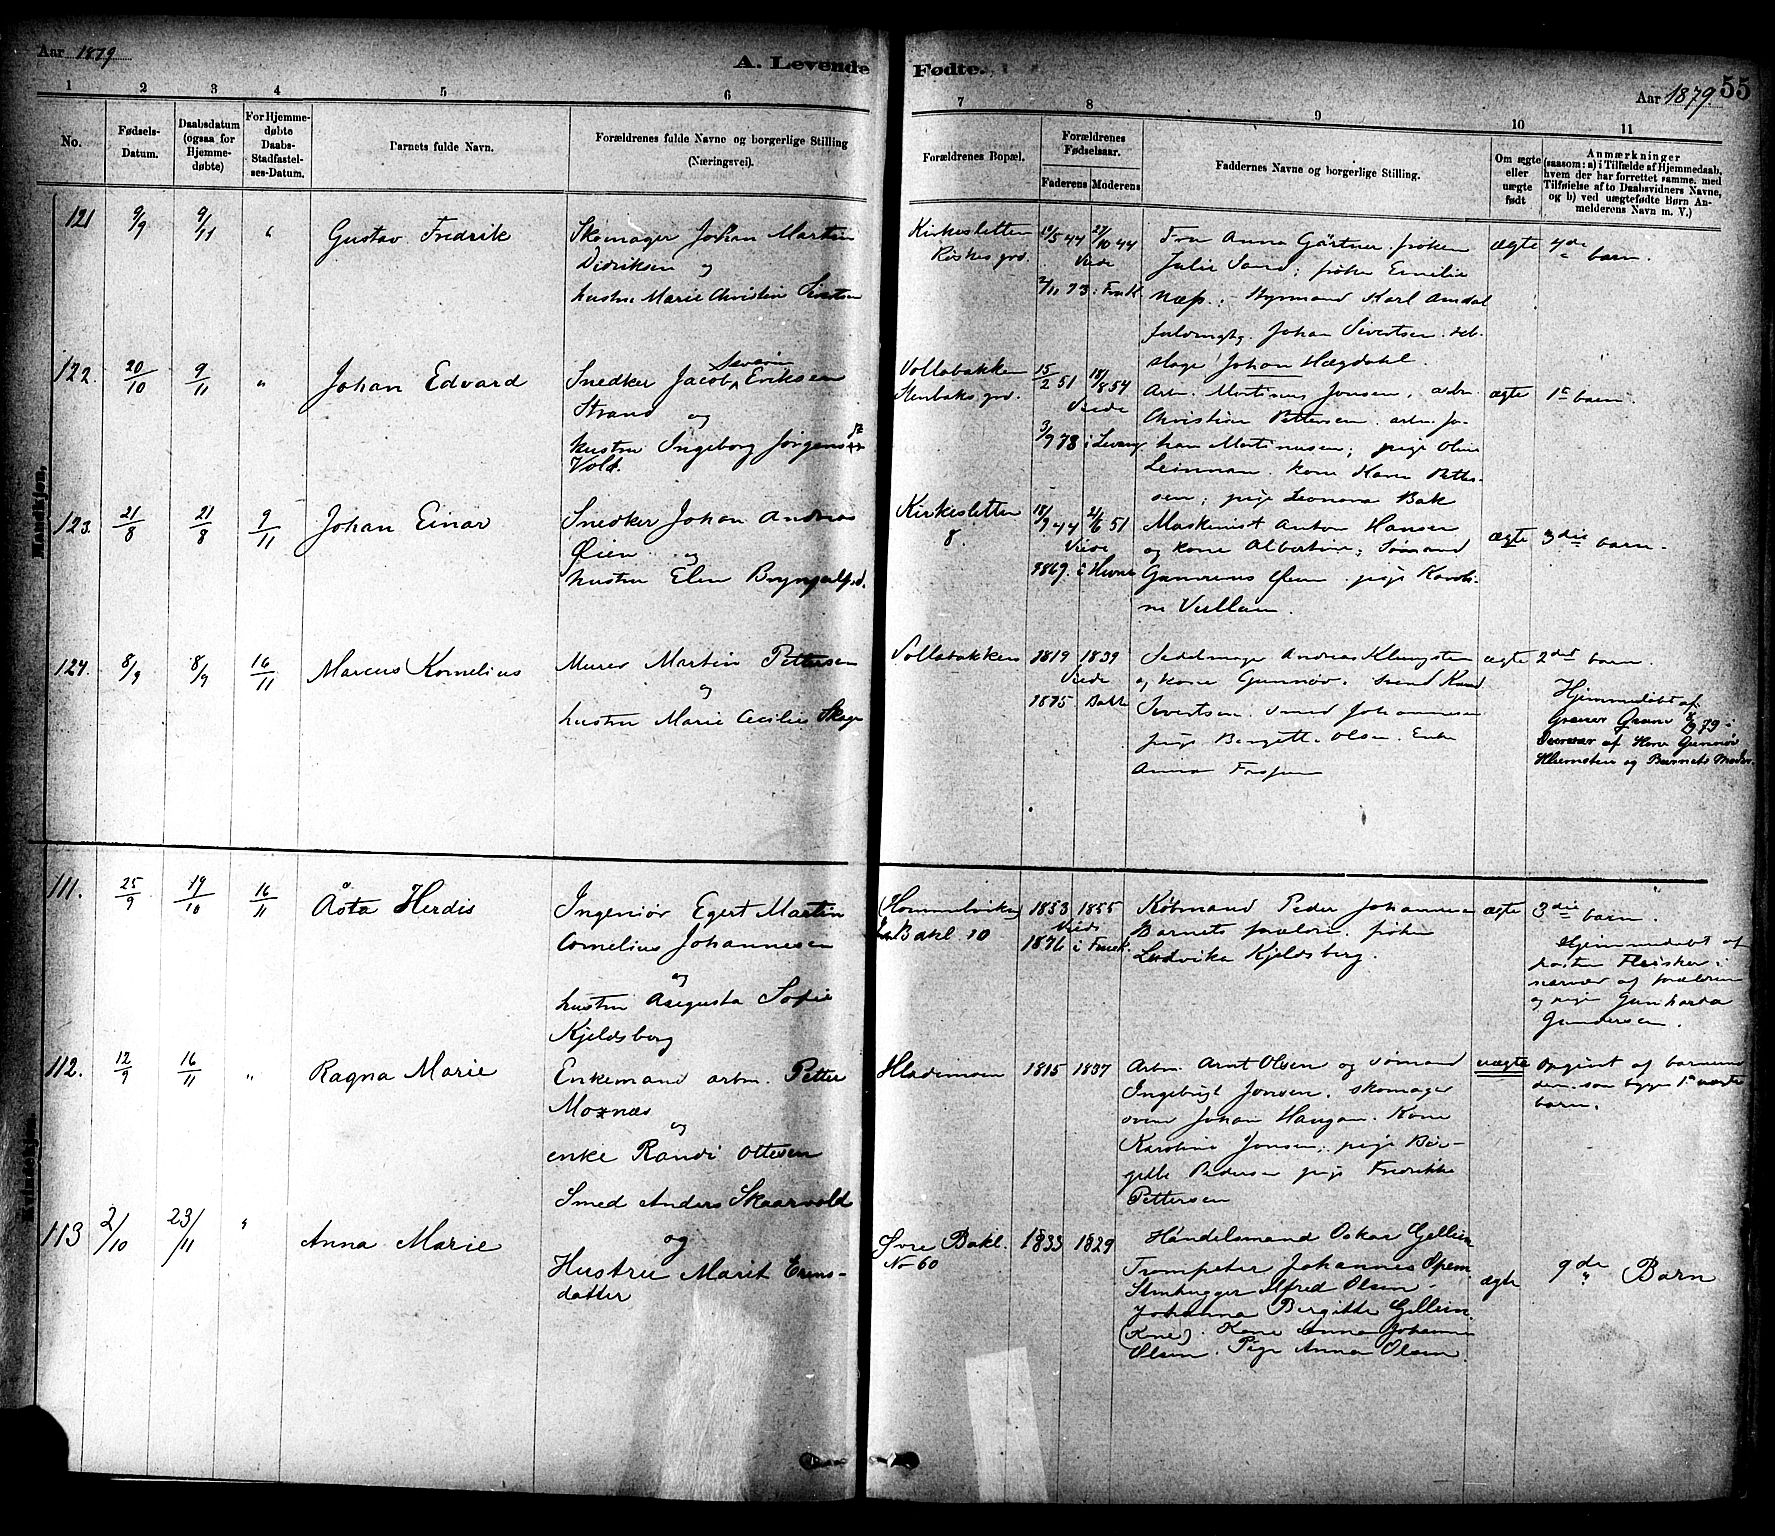 Aar 1879
A. Levende Fødte.
Aar 1879
55
1 2 3 4 5 6 7 8 9 10 11
No.
Fødsels-
Datum.
Daabsdatum
(ogsaa for
Hjemme-
døbte)
For Hjemme-
døbte
Daabs-
Stadfæstel-
ses-Datum.
Barnets fulde Navn.
Forældrenes fulde Navne og borgerlige Stilling
(Næringsvei).
Forældrenes Bopæl.
Forældrenes
Fødselsaar.
Faderens Moderens
Faddernes Navne og borgerlige Stilling.
Om ægte
eller
uægte
født
Anmærkninger
(saasom: a) i Tilfælde af Hjemmedaab,
hvem der har forrettet samme, med
Tilføielse af to Daabsvidners Navne,
og b) ved uægtefødte Børn An-
melderens Navn m. V.)
Mandkjøn.
121 9/9 9/11 " Gustav Fredrik
Skomager Johan Martin
Didriksen og
hustru Marie Christin
Kirkesletten
19/5 44 27/10 44
Viede
2/11 73 i
Fru Anna Gärtner, frøken
Julie Sand; frøken Emilie
Næss; Styrmand Karl Amdal
Johan Sivertsen
Johan Hægdahl.
ægte
4de barn.
122. 20/10 9/11 " Johan Edvard
Snedker Jacob Severin Eriksen
Strand og
hustru Ingeborg Jørgens
Vold.
Vollabakken
Stenbaks grd.
15/2 51 18/8 54
Viede
3/9 78 i Levang
Arb. Martinus Jonsen, arb.
Christian Pettersen, arb. Jo-
han Martinusen; pige Oline
Leinman, kone Karen Petter-
sen; pige Leonora Bak
ægte
1ste barn.
123. 21/8 21/8 9/11 Johan Einar
Snedker Johan Andreas
Øien og
hustru Elen Bryngelsd.
Kirkesletten
8.
18/9 44 2/6 51
Viede
1869. i Hevne
Maskinist Anton Hansen
og kone Albertine; Sømand
Øien pige Karoli-
ne Vullan.
ægte
3die barn.
124. 8/9 8/9 16/11 Marcus Kornelius
Murer Martin Pettersen
og
hustru Marie Cecilie Skage
Vollabakken
1819 1839
Viede
1875 Bakke
Sadelmager Andreas Klungsten
og kone Gunnør, svend
Sivertsen, smed Johannesen
pige Bergette Olsen. Enke
Anna
ægte
2det barn.
Hjemmedøbt af
Graver Gram 8/9 79 i
Nærvær af Kone Gunnør
Klumsten og Barnets Moder.
Kvindekjøn.
111. 25/9 19/10 16/11 Åsta Herdis
Ingeniør Egert Martin
Cornelius Johannesen
og
hustru Augusta Sofie
Kjeldsberg
(Hommelviken)
Bakl. 10
1853 1855
Viede
1876 i
Købmand Peder Johannesen
Barnets forældre, frøken
Ludvika Kjeldsberg.
ægte
3die barn.
Hjemmedøbt af
pastor Fleischer i
nærvær af forældrene
og pige Gunharda
Gundersen.
112. 12/9 16/11 " Ragna Marie
Enkemand arbm. Petter
Moxnæs
og
enke Randi Ottesen
Hlademoen
1815 1837
Arbm. Arnt Olsen og sømand
Ingebrigt Jonsen, skomager
svend Johan Haugan. Kone
Karoline Jonsen, pige Ber-
gitte Pedersen pige Fredrikke
Pettersen
uægte
Opgivet af barnemo-
deren som begges 1ste uægte
barn.
113 2/10 23/11 " Anna Marie
Smed Anders Skaarvold
og
Hustru Marit Erens-
datter
Øvre Bakl.
No 60
1833 1829
Handelsmand Oskar Gellein
Trompeter Johannes Opem
Stenhugger Alfred Olsen
Johanna Birgitte Gellein
(Kone). Kone Anna Johanna
Olsen. Pige Anna Olsen.
ægte
9de Barn